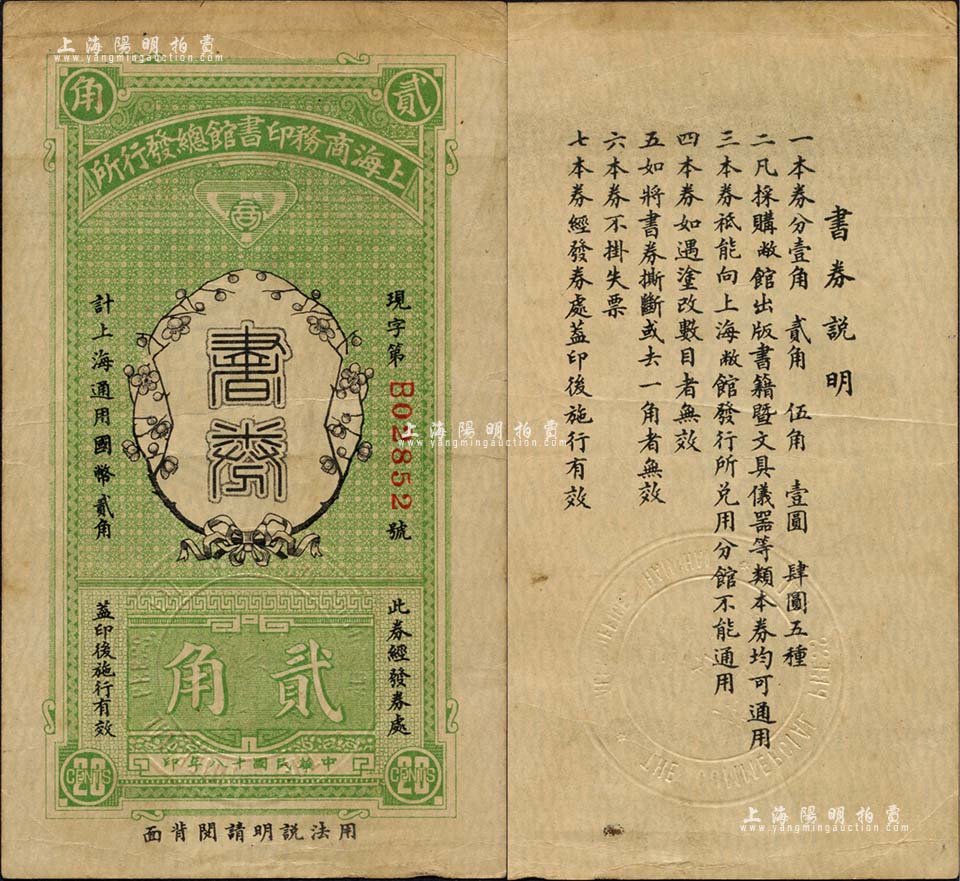 上海陽明拍賣
www.yangmingauction.com
貳
角
上海商務印書館總發行所
商
現字第B02852號
書券
計上海通用國幣貳角
此券經發券處
貳角
蓋印後施行有效
20 CENTS
20 CENTS
中華民國十八年印
用法説明請閱背面
書券説明
一本券分壹角 貳角 伍角 壹圓 肆圓五種
二凡採購敝館出版書籍暨文具儀器等類本券均可通用
三本券祇能向上海敝館發行所兑用分館不能通用
四本券如遇塗改數目者無效
五如將書券撕斷或去一角者無效
六本券不掛失票
七本券經發券處蓋印後施行有效
上海陽明拍賣
www.yangmingauction.com
上海陽明拍賣
www.yangmingauction.com